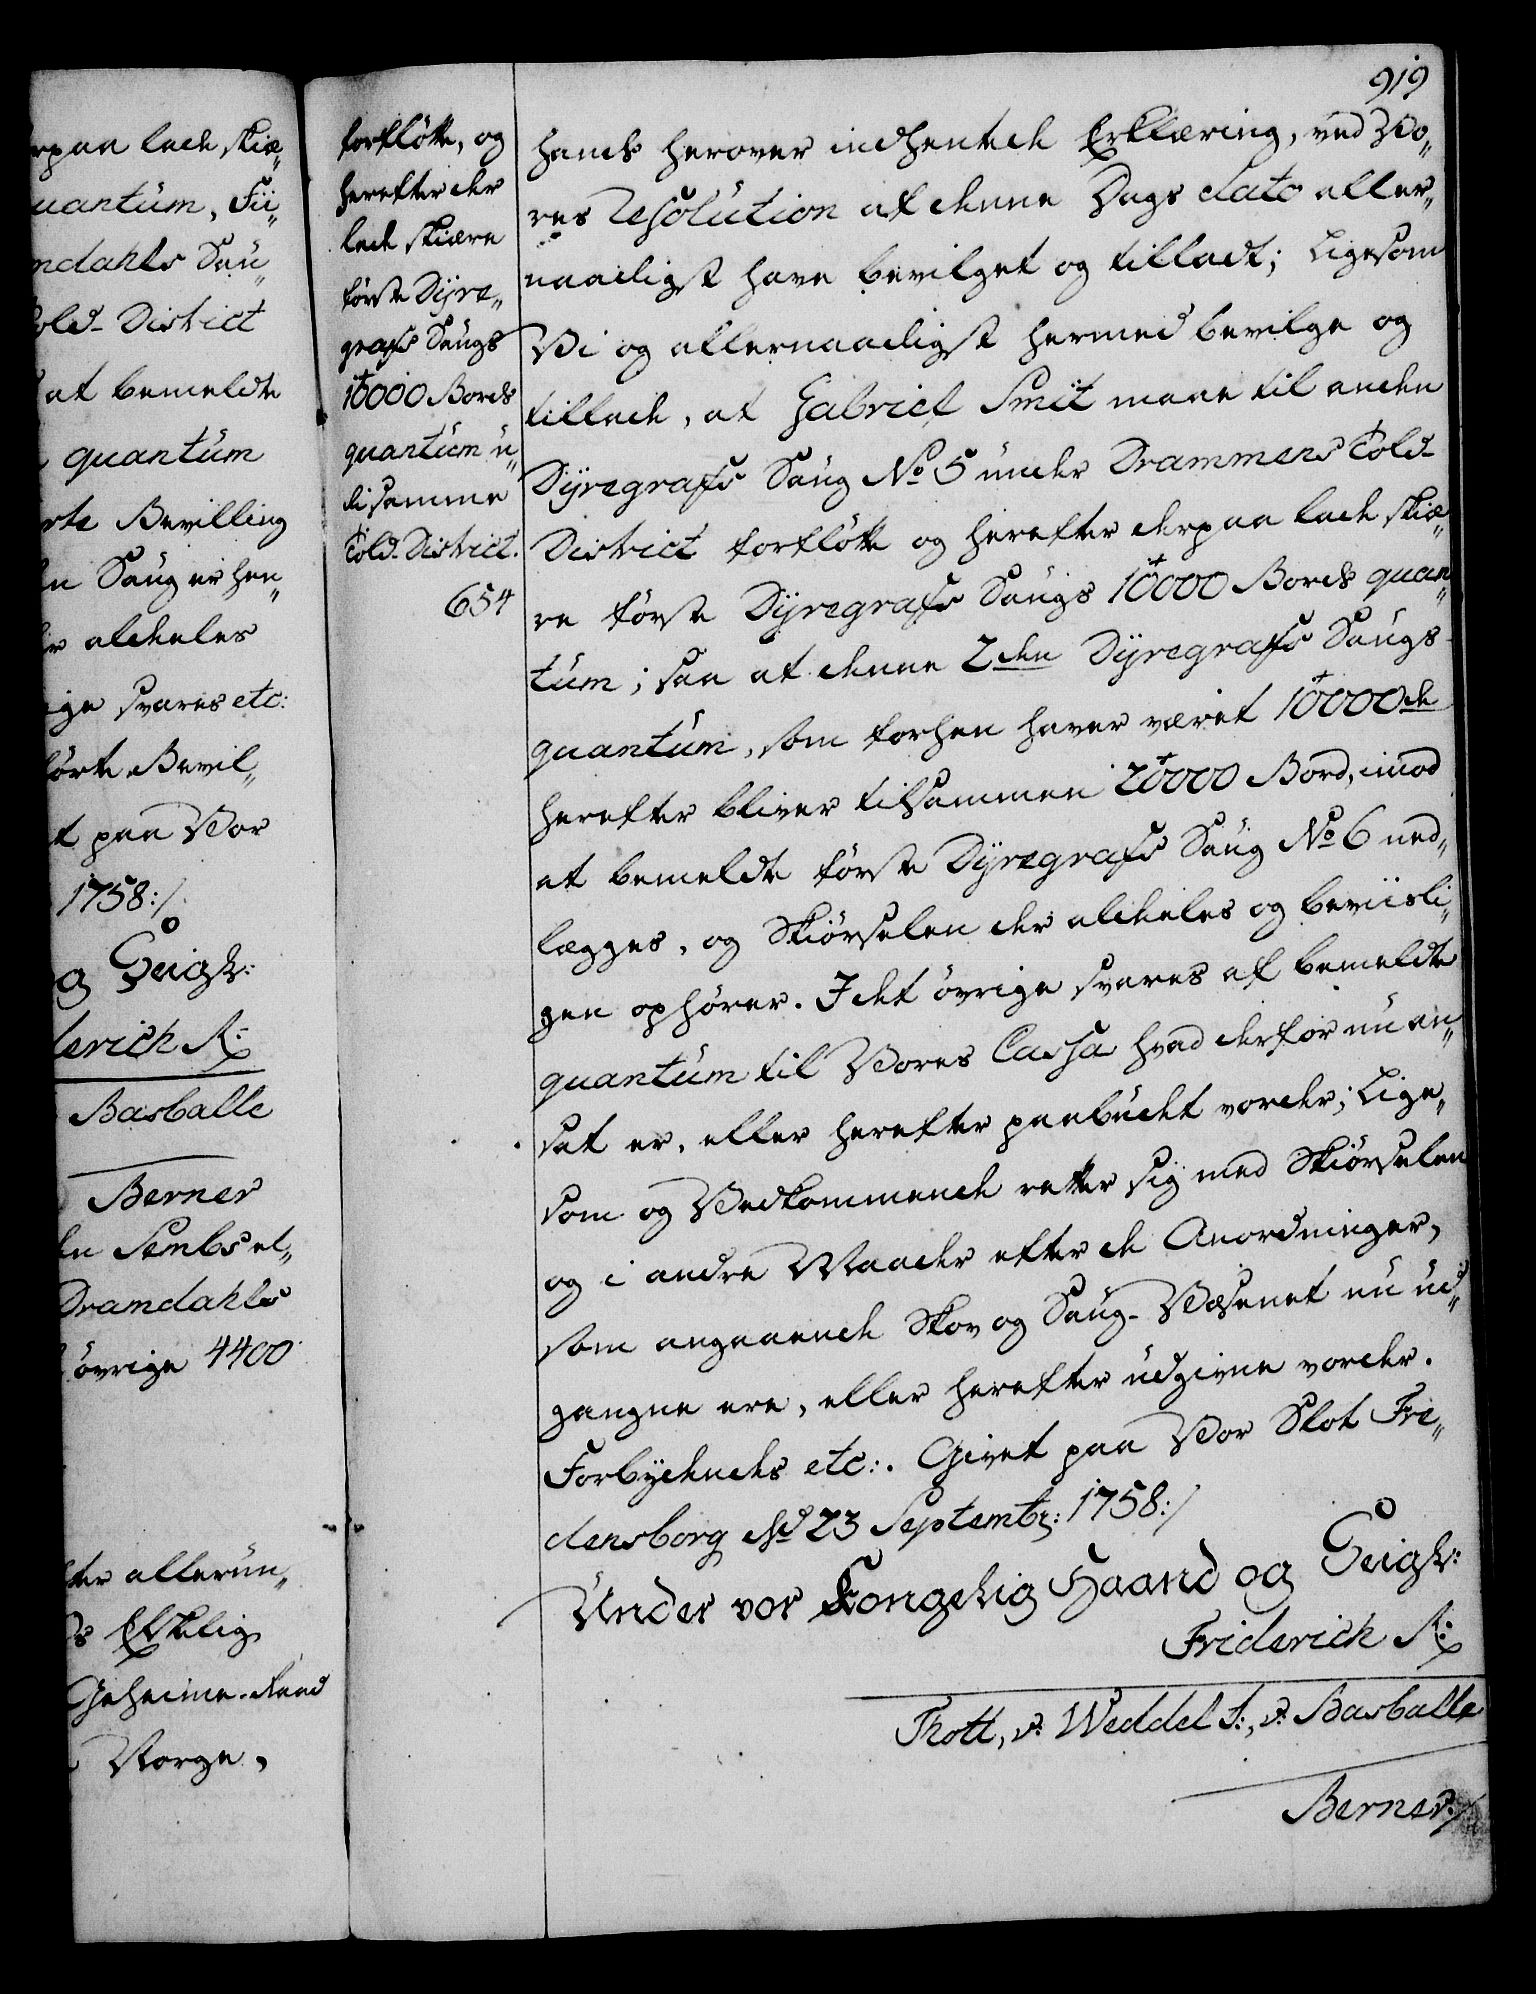 rpaa lade skiæ„
uantum, Fü„
ndahls Sau„
old-District
at bemeldte
quantum
rte Bevilling
n Saug er hen„
r aldeles
ige svares etc:
førte Bevil„
t paa Vor
1758:/.
og Seigl:
derich R:
Basballe
Berner
en Sembs el„
Dramdahls
øvrige 4400
ter allerun„
s Elskelig
Geheime-Raad
Norge,
forfløtte, og
herefter der
lade skiære
første Dyre„
grafs Saugs
10000 Bords
quantum u„
di samme
Told-District.
654
919
hands herover indhentede Erklæring, ved Vo„
res Resolution af denne Dags dato aller„
naadigst have bevilget og tilladt; Ligesom
Vi og allernaadigst hermed bevilge og
tillade, at Gabriel Smit maae til anden
Dyregrafs Saug No 5 under Drammens Told-
District forfløtte og herefter derpaa lade skiæ„
re første Dyregrafs Saugs 10000 Bords quan„
tum; saa at denne 2den Dyregrafs Saugs
quantum, som forhen haver været 10000de
herefter bliver tilsammen 20000 Bord, imod
at bemeldte første Dyregrafs Saug No 6 ned„
lægges, og Skiørselen der aldeles og beviisli„
gen ophører. I det øvrige svares af bemeldte
quantum til Vores Cassa hvad derfor nu an„
sat er, eller herefter paabudet vorder; Lige„
som og Vedkommende retter sig med Skiørselen
og i andre Maader efter de Anordninger,
som angaaende Skov og Saug-Væsenet nu ud„
gangne ere, eller herefter udgivne vorder.
Forbydendes etc:. Givet paa Vor Slot Fre„
densborg d. 23 Septembr: 1758:/
Under vor Kongelig Haand og Seigl:
Friderich R:
Thott, v: Weddel F:, v: Basballe
Berner:/